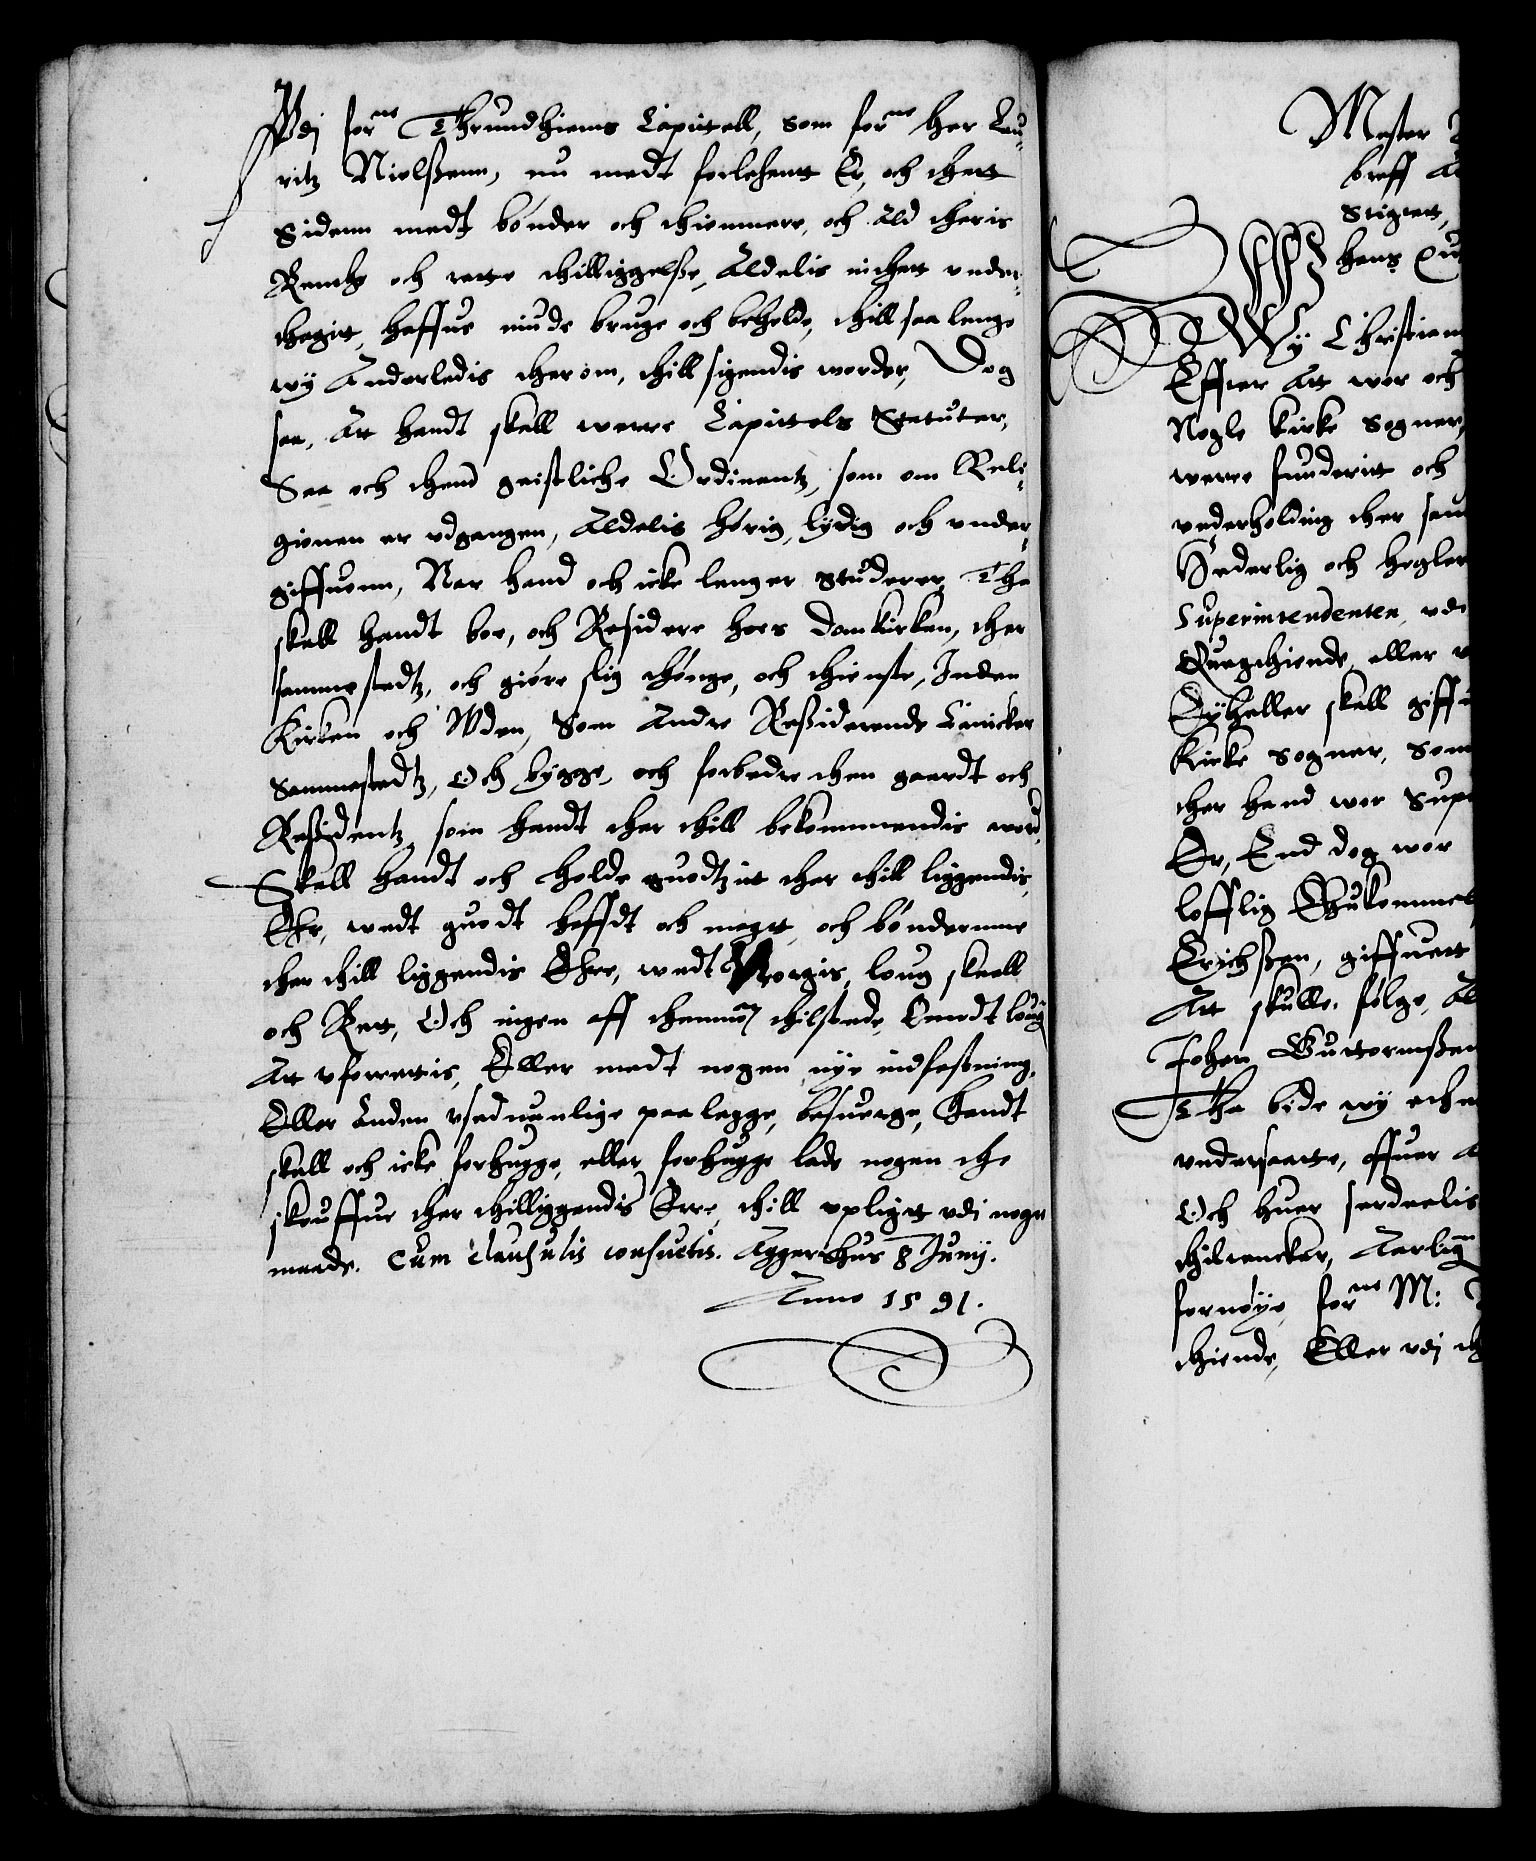 Vdj forne Thrundhiems Capittell, som forne her Lau-
ritz Nielssenn, nu medt forlehentt Er, och thett
Sidenn medt bønder och thiennere, och Ald theris
Rentte och rette thilliggelsse, Aldelis inthett vnder-
thagitt, haffue niude bruge och beholde, thill saa lenge
wij Anderledis therom, thill sigendis worder, Dog
saa, Att handt skall werre Capittels Statuter,
Saa och thend geistliche Ordinantz, som om Reli-
gionen er vdgangen, Aldelis hørig, lydig och vnder-
giffuenn, Nar hand och icke lenger studerer, Tha
skall handt boe, och Residere hoes Domkirken, ther
sammestedtz, och giøre slig thønge, och thieniste, Inden
Kircken och Vden, Som Andre Ressiderende Cannicker
Sammestedtz, Och bygge, och forbedre then gaardt och
Ressidentz som handt ther thill bekommendis word
Skall handt och holde guodtzitt ther thill liggendis,
Ehr, wedt guodt heffdt och magt, och bøndernne
ther thill liggendis Ehre, wedt Norgis, loug skell
och Rett, Och ingen aff thennom thilstede, Emodt loug
Att vforrettis, Eller medt nogen nye indfestning,
Eller Anden vseduanlige paalegge, besuerge, Handt
skall och icke forhugge, eller forhugge lade nogen the
skouffue ther thilliggendis Erre, thill vpligt vdi nogn
maade. Cum clausulis consuetis. Aggershus 8 Junij.
Anno 1591.
Mester
breff
Stigtet,
hans
Wij Christian
Effter Att wor och
Nogle kircke Sogner,
werre funderitt och
vnderholding ther
Hæderlig och høgler
Superintendenten, vdi
Quegthiende eller
skall giffu
Kircke Sogner, Som
ther hand wor Supe
Er, End dog wor
lofflig Ihukommel
Erichssen, giffuett
Att skulle følge, Al
Johan Guttormssen
Tha bede wij
vndersaatte, offuer
Och huer serdeelis
thiltencker, Aarlig
fornøye, forne M:
thiende, Eller vdj